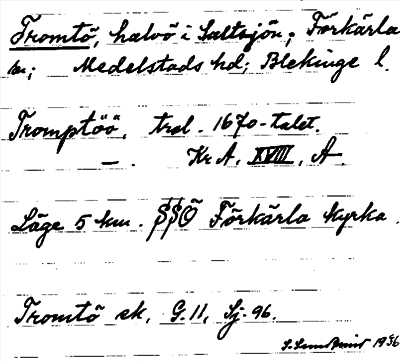 Tromtö, halvö i Saltsjön; Förkärla
sn; Medelstads hd; Blekinge l.
Tromptöö, trol. 1670-talet.
—. Kr A, XVIII, A.
Läge 5 km. SSÖ Förkärla kyrka.
Tromtö ek, G. 11, Sj. 96.
1936